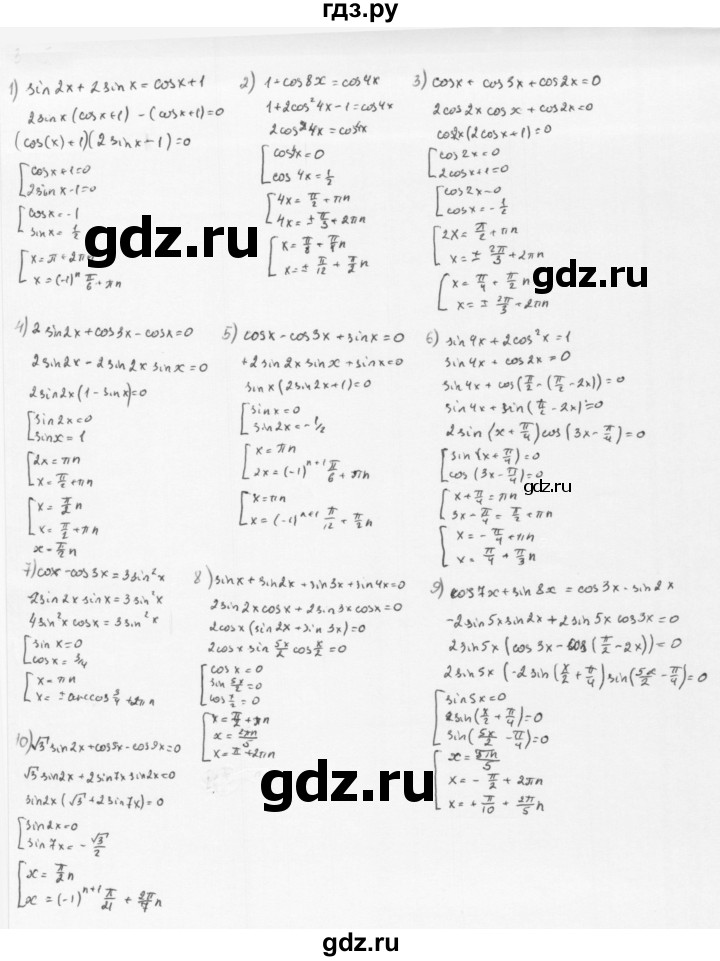 гдз.ру
1) sin 2x + 2 sin x = cos x + 1
2 sin x (cos x + 1) - (cos x + 1) = 0
(cos(x) + 1)(2 sin x - 1) = 0
[cos x + 1 = 0
2 sin x - 1 = 0
[cos x = -1
sin x = 1/2
[x = π + 2πn
x = (-1)^n π/6 + πn
2) 1 + cos 8x = cos 4x
1 + 2cos²4x - 1 = cos 4x
2cos²4x = cos 4x
[cos 4x = 0
cos 4x = 1/2
[4x = π/2 + πn
4x = ± π/3 + 2πn
[x = π/8 + π/8 n
x = ± π/12 + π/2 n
3) cos x + cos 3x + cos 2x = 0
2cos 2x cos x + cos 2x = 0
cos 2x (2cos x + 1) = 0
[cos 2x = 0
2cos x + 1 = 0
[cos 2x = 0
cos x = - 1/2
[2x = π/2 + πn
x = ± 2π/3 + 2πn
[x = π/4 + π/2 n
x = ± 2π/3 + 2πn
gdz.ru
4) 2 sin 2x + cos 3x - cos x = 0
2 sin 2x - 2 sin 2x sin x = 0
2 sin 2x (1 - sin x) = 0
[sin 2x = 0
sin x = 1
[2x = πn
x = π/2 + πn
[x = π/2 n
x = π/2 + πn
x = π/2 n
5) cos x - cos 3x + sin x = 0
+2 sin 2x sin x + sin x = 0
sin x (2 sin 2x + 1) = 0
[sin x = 0
sin 2x = -1/2
[x = πn
2x = (-1)^{n+1} π/6 + πn
[x = πn
x = (-1)^{n+1} π/12 + π/2 n
6) sin 4x + 2cos²x = 1
sin 4x + cos 2x = 0
sin 4x + cos(π/2 - (π/2 - 2x)) = 0
sin 4x + sin(π/2 - 2x) = 0
2 sin(x + π/4) cos(3x - π/4) = 0
[sin(x + π/4) = 0
cos(3x - π/4) = 0
[x + π/4 = πn
3x - π/4 = π/2 + πn
[x = - π/4 + πn
x = π/4 + π/3 n
gdz.ru
7) cos x - cos 3x = 3 sin²x
2 sin 2x sin x = 3 sin²x
4 sin²x cos x = 3 sin²x
[sin x = 0
cos x = 3/4
[x = πn
x = ± arccos 3/4 + 2πn
8) sin x + sin 2x + sin 3x + sin 4x = 0
2 sin 2x cos x + 2 sin 3x cos x = 0
2cos x (sin 2x + sin 3x) = 0
2cos x sin 5x/2 cos x/2 = 0
[cos x = 0
sin 5x/2 = 0
cos x/2 = 0
[x = π/2 + πn
x = 2πn/5
x = π + 2πn
9) cos 7x + sin 8x = cos 3x - sin 2x
-2 sin 5x sin 2x + 2 sin 5x cos 3x = 0
2 sin 5x (cos 3x - cos(π/2 - 2x)) = 0
2 sin 5x (-2 sin(x/2 + π/4) sin(5x/2 - π/4) = 0
[sin 5x = 0
2 sin(x/2 + π/4) = 0
sin(5x/2 - π/4) = 0
[x = πn/5
x = - π/2 + 2πn
x = + π/10 + 2π/5 n
10) √3 sin 2x + cos 5x - cos 9x = 0
√3 sin 2x + 2 sin 7x sin 2x = 0
sin 2x (√3 + 2 sin 7x) = 0
[sin 2x = 0
sin 7x = - √3/2
[x = π/2 n
x = (-1)^{n+1} π/21 + π/7 n
gdz.ru
gdz.ru